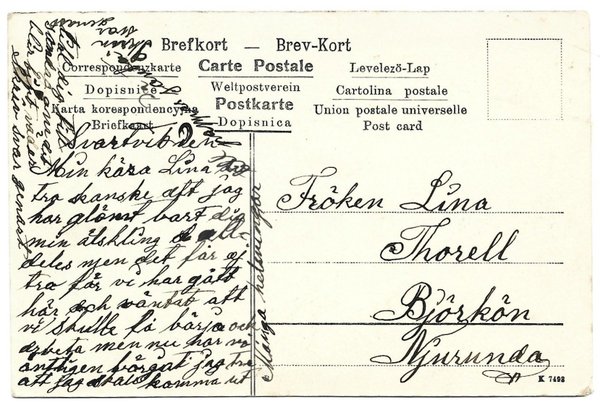 Brefkort — Brev-Kort
Correspondenzkarte
Carte Postale
Levelező-Lap
Dopisnice
Weltpostverein
Cartolina postale
Karta korespondencyjna
Postkarte
Union postale universelle
Briefkaart
Dopisnica
Post card
Svartvik den
Min kära Lina du
tro kanske att jag
har glömt bort dig
min älskling
deles men det får ej
tro för vi har gått
här och väntat att
vi skulle få börja och
arbeta men nu har vi
äntligen börjat jag tro
att jag skall komma ut
Många helsningar
Skriv svar genast
Fröken Lina
Thorell
Björkön
Njurunda
K 7493